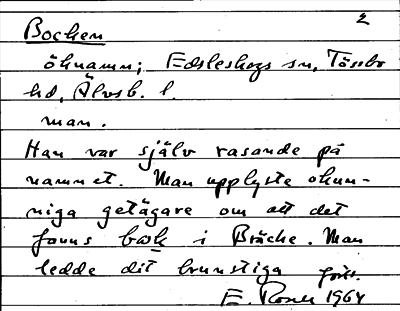 2
Bocken
öknamn; Edsleskogs sn, Tössbo
hd, Älvsb. l.
man.
Han var själv rasande på
namnet. Man upplyste okun-
niga getägare om att det
fanns bock i Bräcke. Man
ledde dit brunstiga
E. 1964